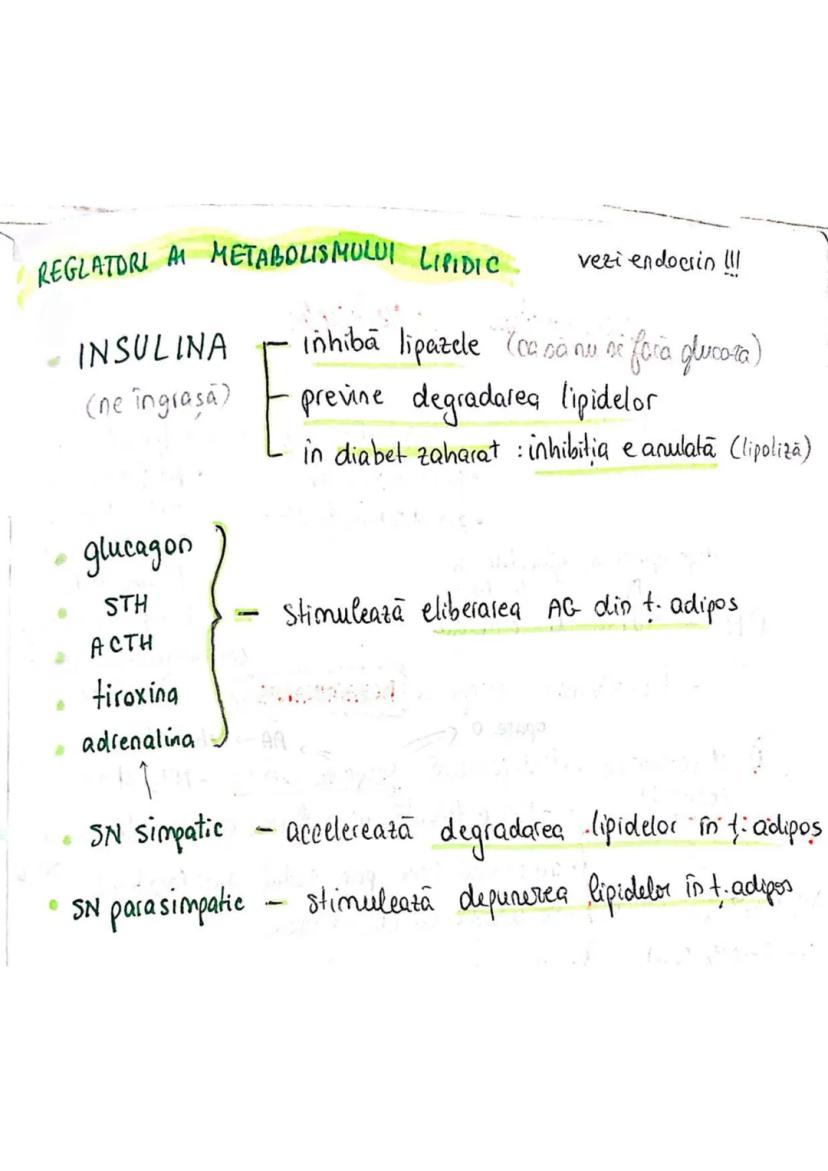 REGLATORI AI METABOLISMULUI LIPIDIC vezi endocrin !!!
INSULINA
(ne îngrașă)
inhibă lipazele (ca să nu se facă glucoza)
previne degradarea lipidelor
in diabet zaharat : inhibiția e anulată (lipoliză)
glucagon
STH
ACTH
tiroxina
adrenalina
— stimulează eliberarea AG din ț. adipos
↑
SN simpatic — accelerează degradarea lipidelor în ț. adipos
SN parasimpatic — stimulează depunerea lipidelor în ț. adipos